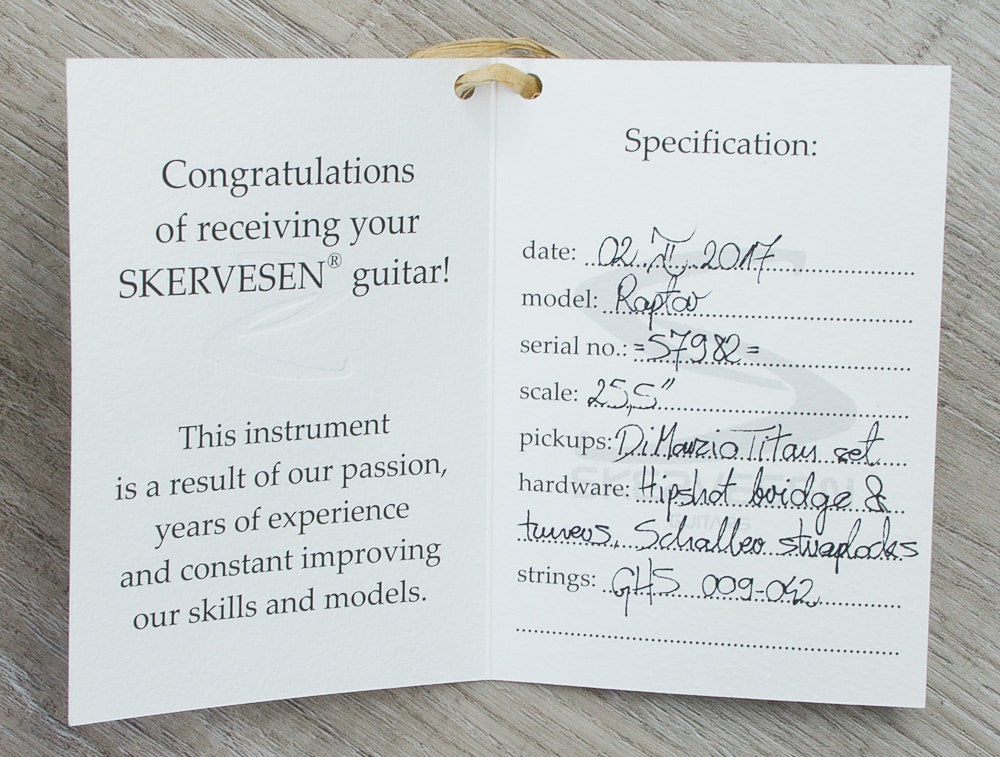 Congratulations
of receiving your
SKERVESEN® guitar!
This instrument
is a result of our passion,
years of experience
and constant improving
our skills and models.
Specification:
date: 02. II. 2017
model: Raptor
serial no.: =S7982=
scale: 25,5"
pickups: DiMarzio Titan set
hardware: Hipshot bridge &
tuners, Schaller straplocks
strings: GHS 009-042